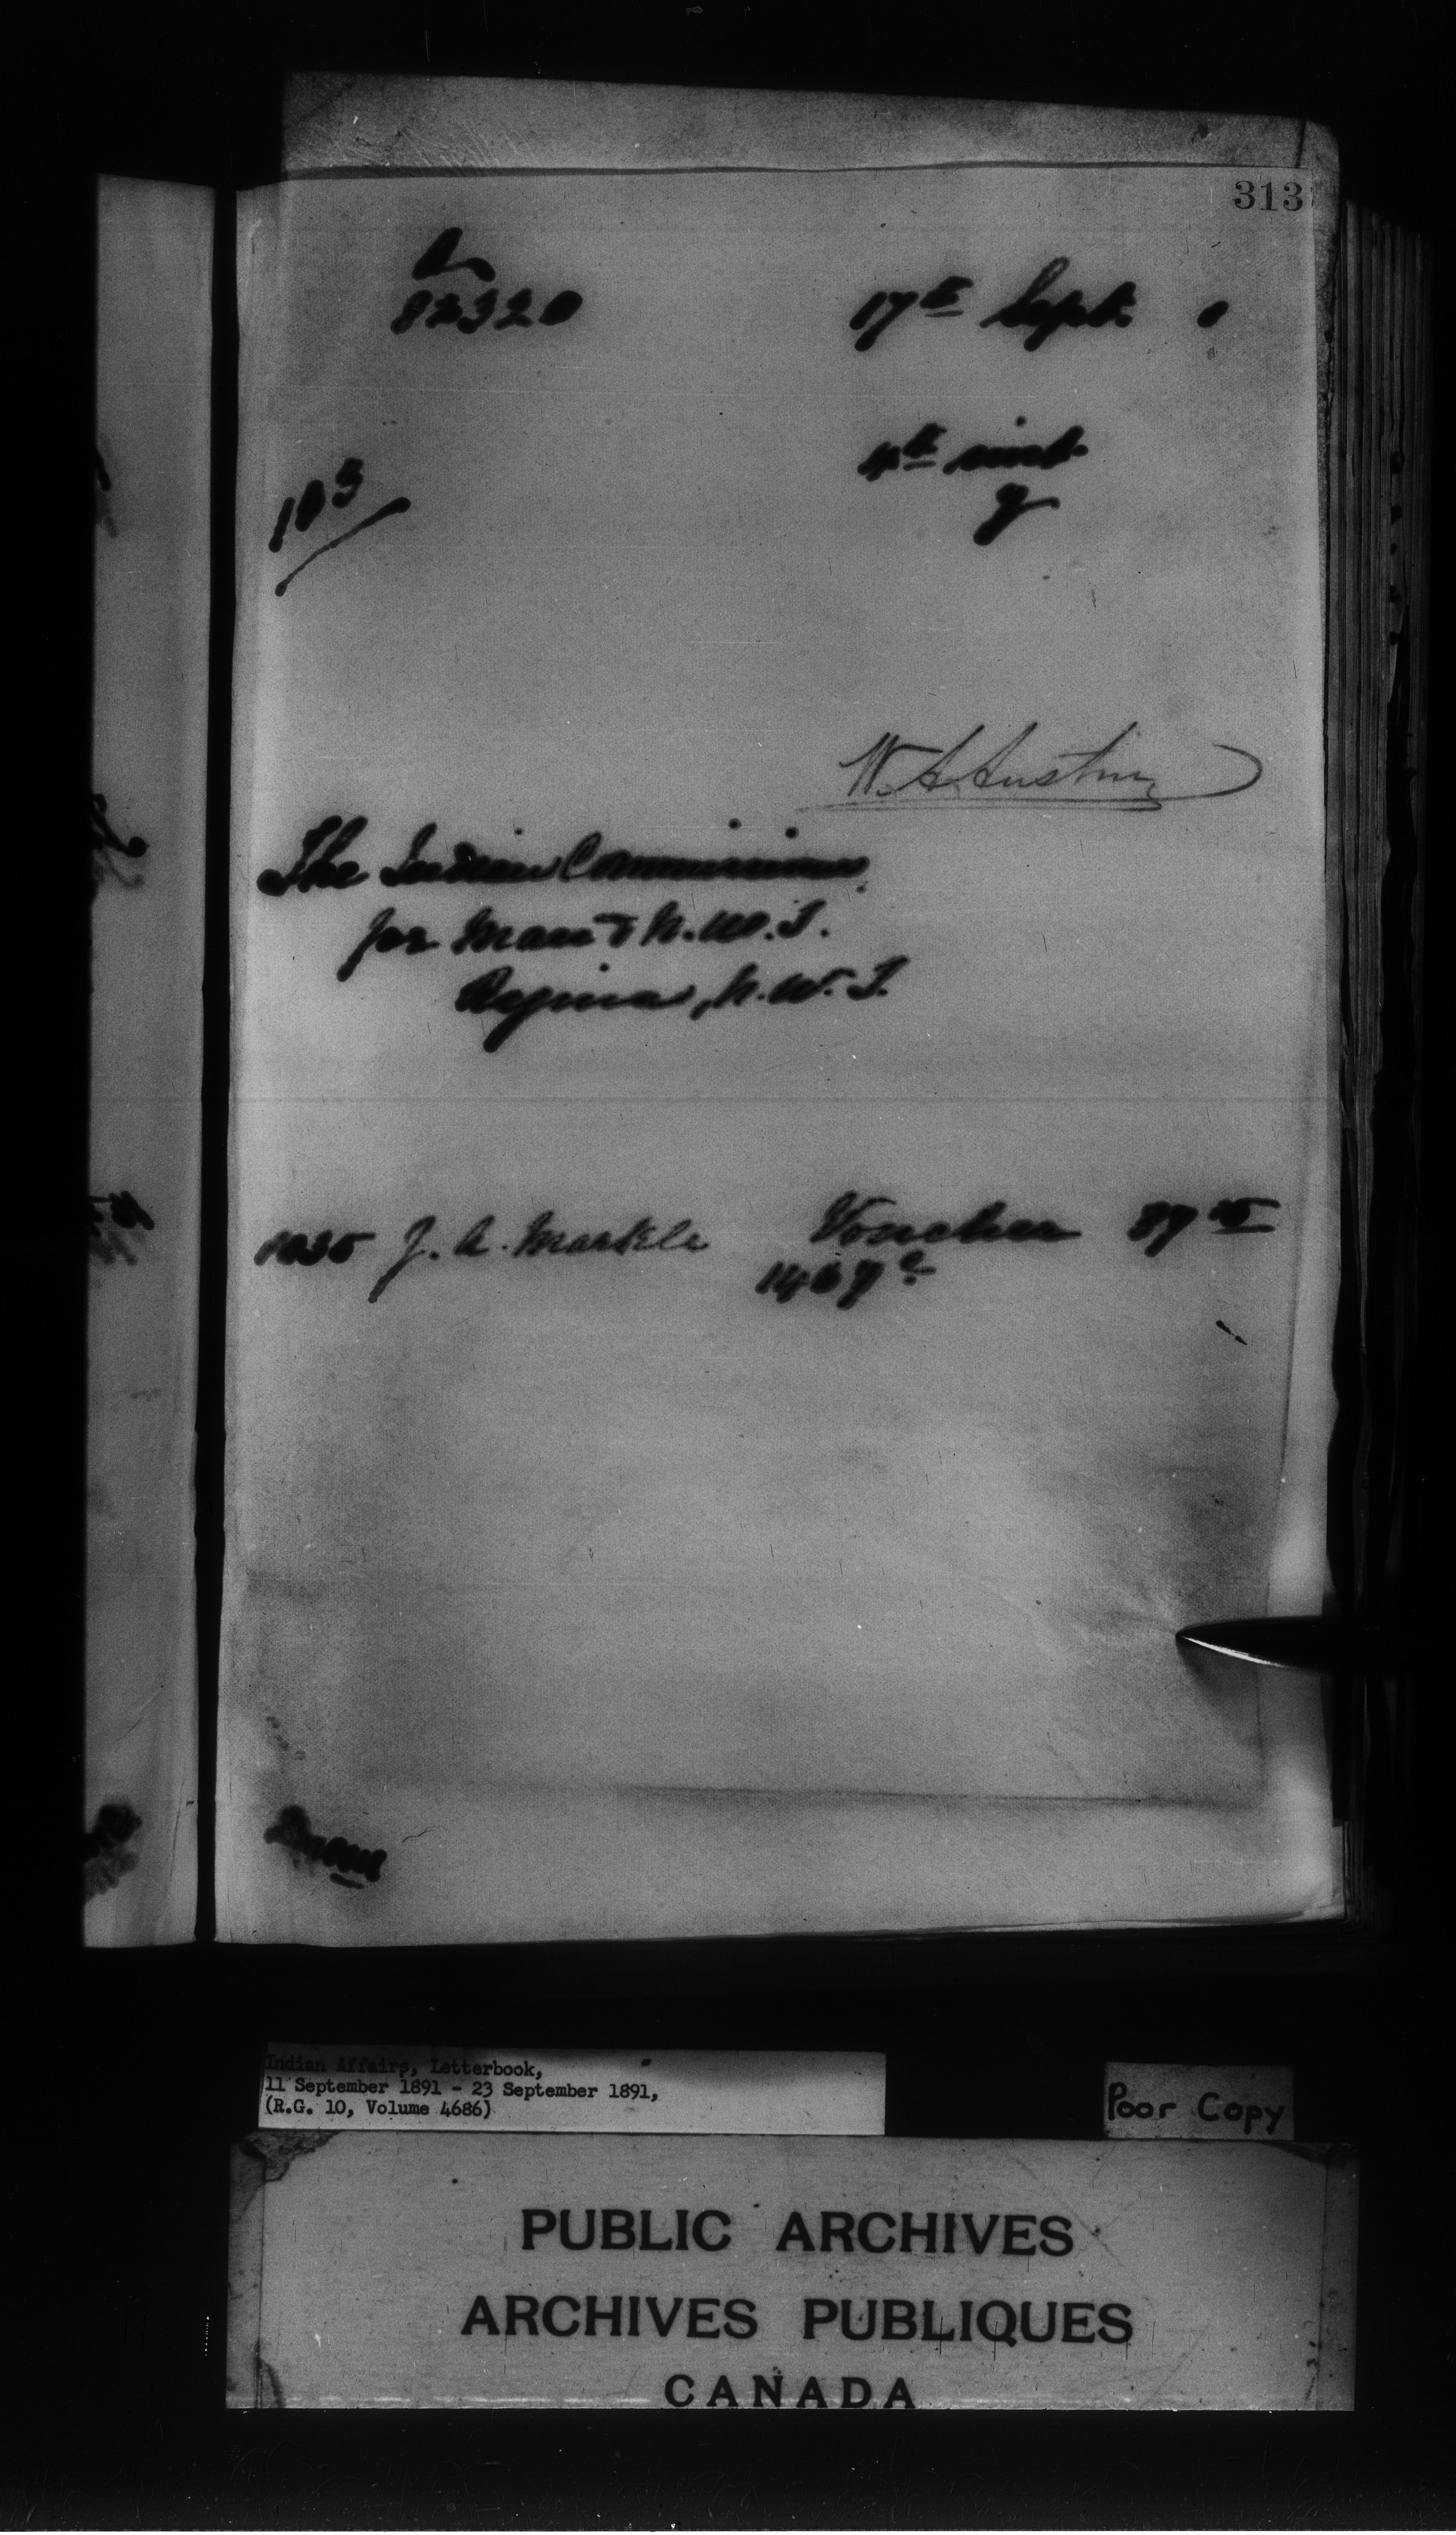 313
82320
17th Sept. 1
4th inst
103
W. A. Austin
The Indian Commissioner
for Man & N.W.T.
Regina, N.W.T.
1035 J. A. Markle Voucher 89
1467
Indian Affairs, Letterbook,
11 September 1891 - 23 September 1891,
(R.G. 10, Volume 4686)
Poor Copy
PUBLIC ARCHIVES
ARCHIVES PUBLIQUES
CANADA